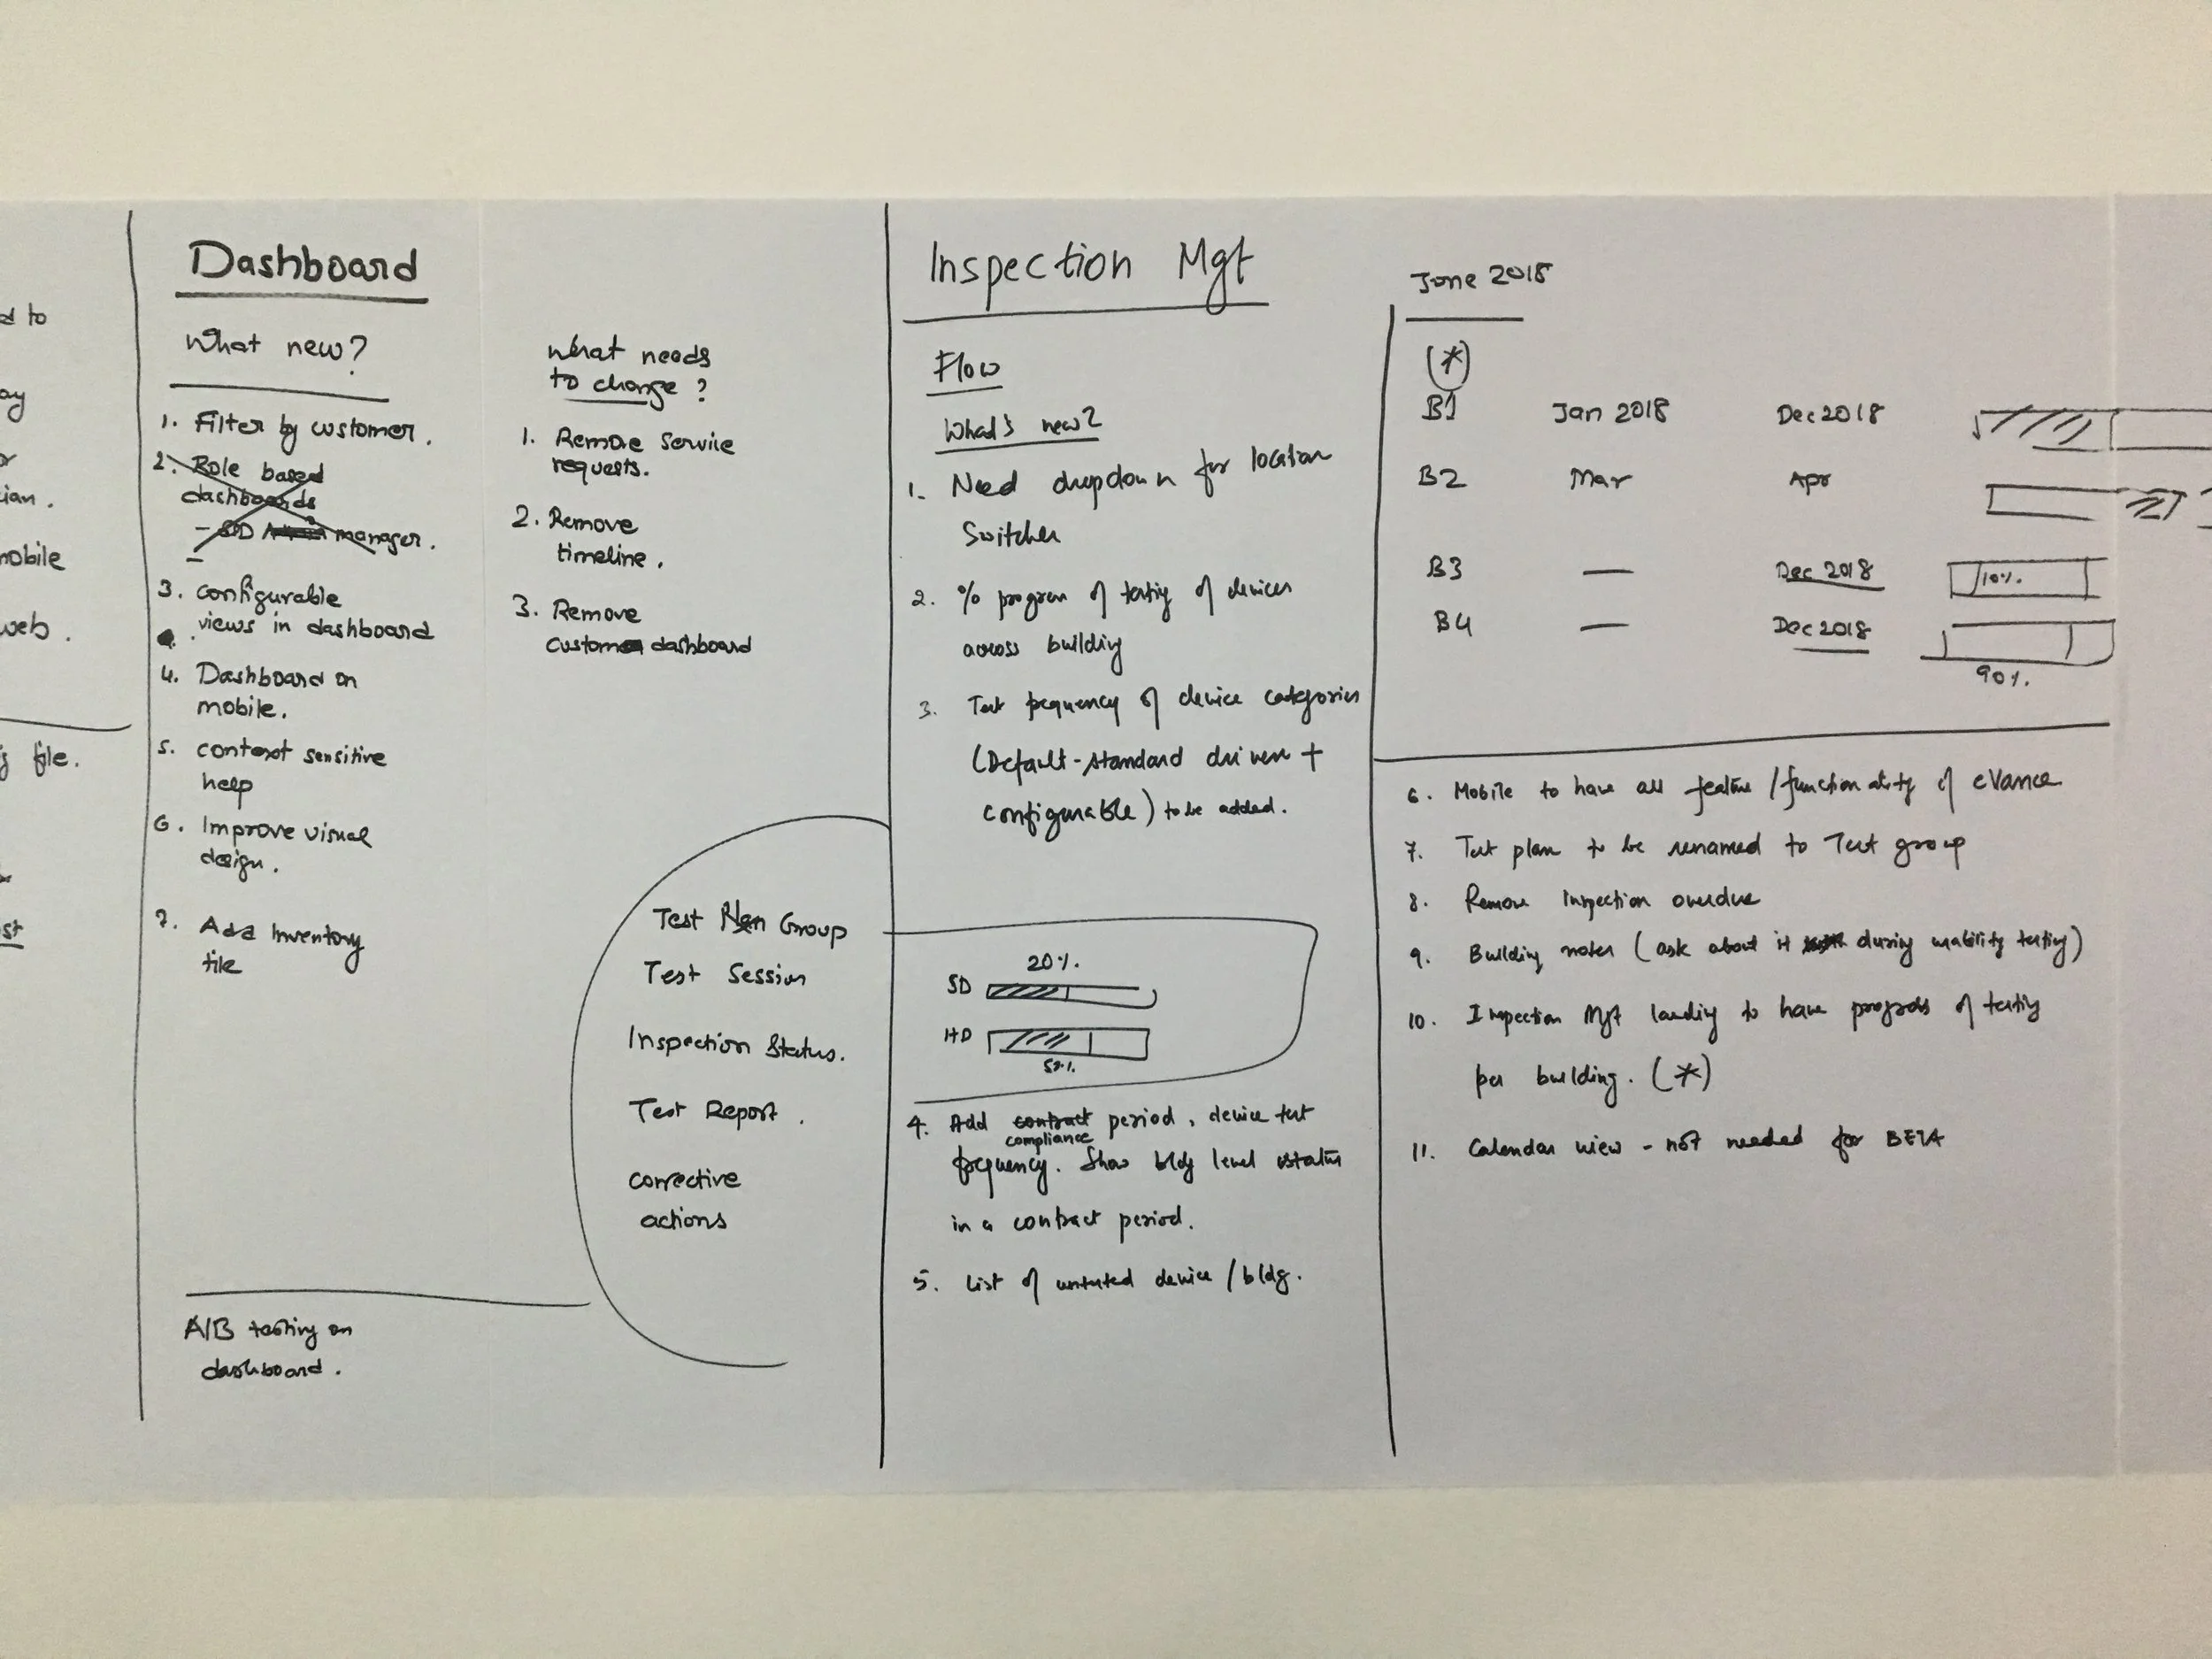 d to
ay
or
ian.
mobile
web.
file.
st
Dashboard
What new?
1. Filter by customer.
2. Role based
dashboards
- SD manager.
3. configurable
views in dashboard
4. Dashboard on
mobile.
5. context sensitive
help
6. Improve visual
design.
7. Add Inventory
tile
A/B testing on
dashboard.
What needs
to change?
1. Remove Service
requests.
2. Remove
timeline.
3. Remove
custom dashboard
Test Plan Group
Test Session
Inspection Status.
Test Report.
Corrective
actions
Inspection Mgt
Flow
What's new?
1. Need dropdown for location
Switcher
2. % progress of testing of devices
across building
3. Test frequency of device categories
(Default-standard driven +
configurable) to be added.
20%.
SD
HD
4. Add contract period, device test
compliance
frequency. Show bldg level status
in a contract period.
5. List of untested device / bldg.
June 2018
(*)
B1 Jan 2018 Dec 2018
B2 Mar Apr
B3 — Dec 2018 10%.
B4 — Dec 2018
90%.
6. Mobile to have all feature / functionality of eVance
7. Test plan to be renamed to Test group
8. Remove Inspection overdue
9. Building notes (ask about it during usability testing)
10. Inspection Mgt landing to have progress of testing
per building. (*)
11. Calendar view - not needed for BETA